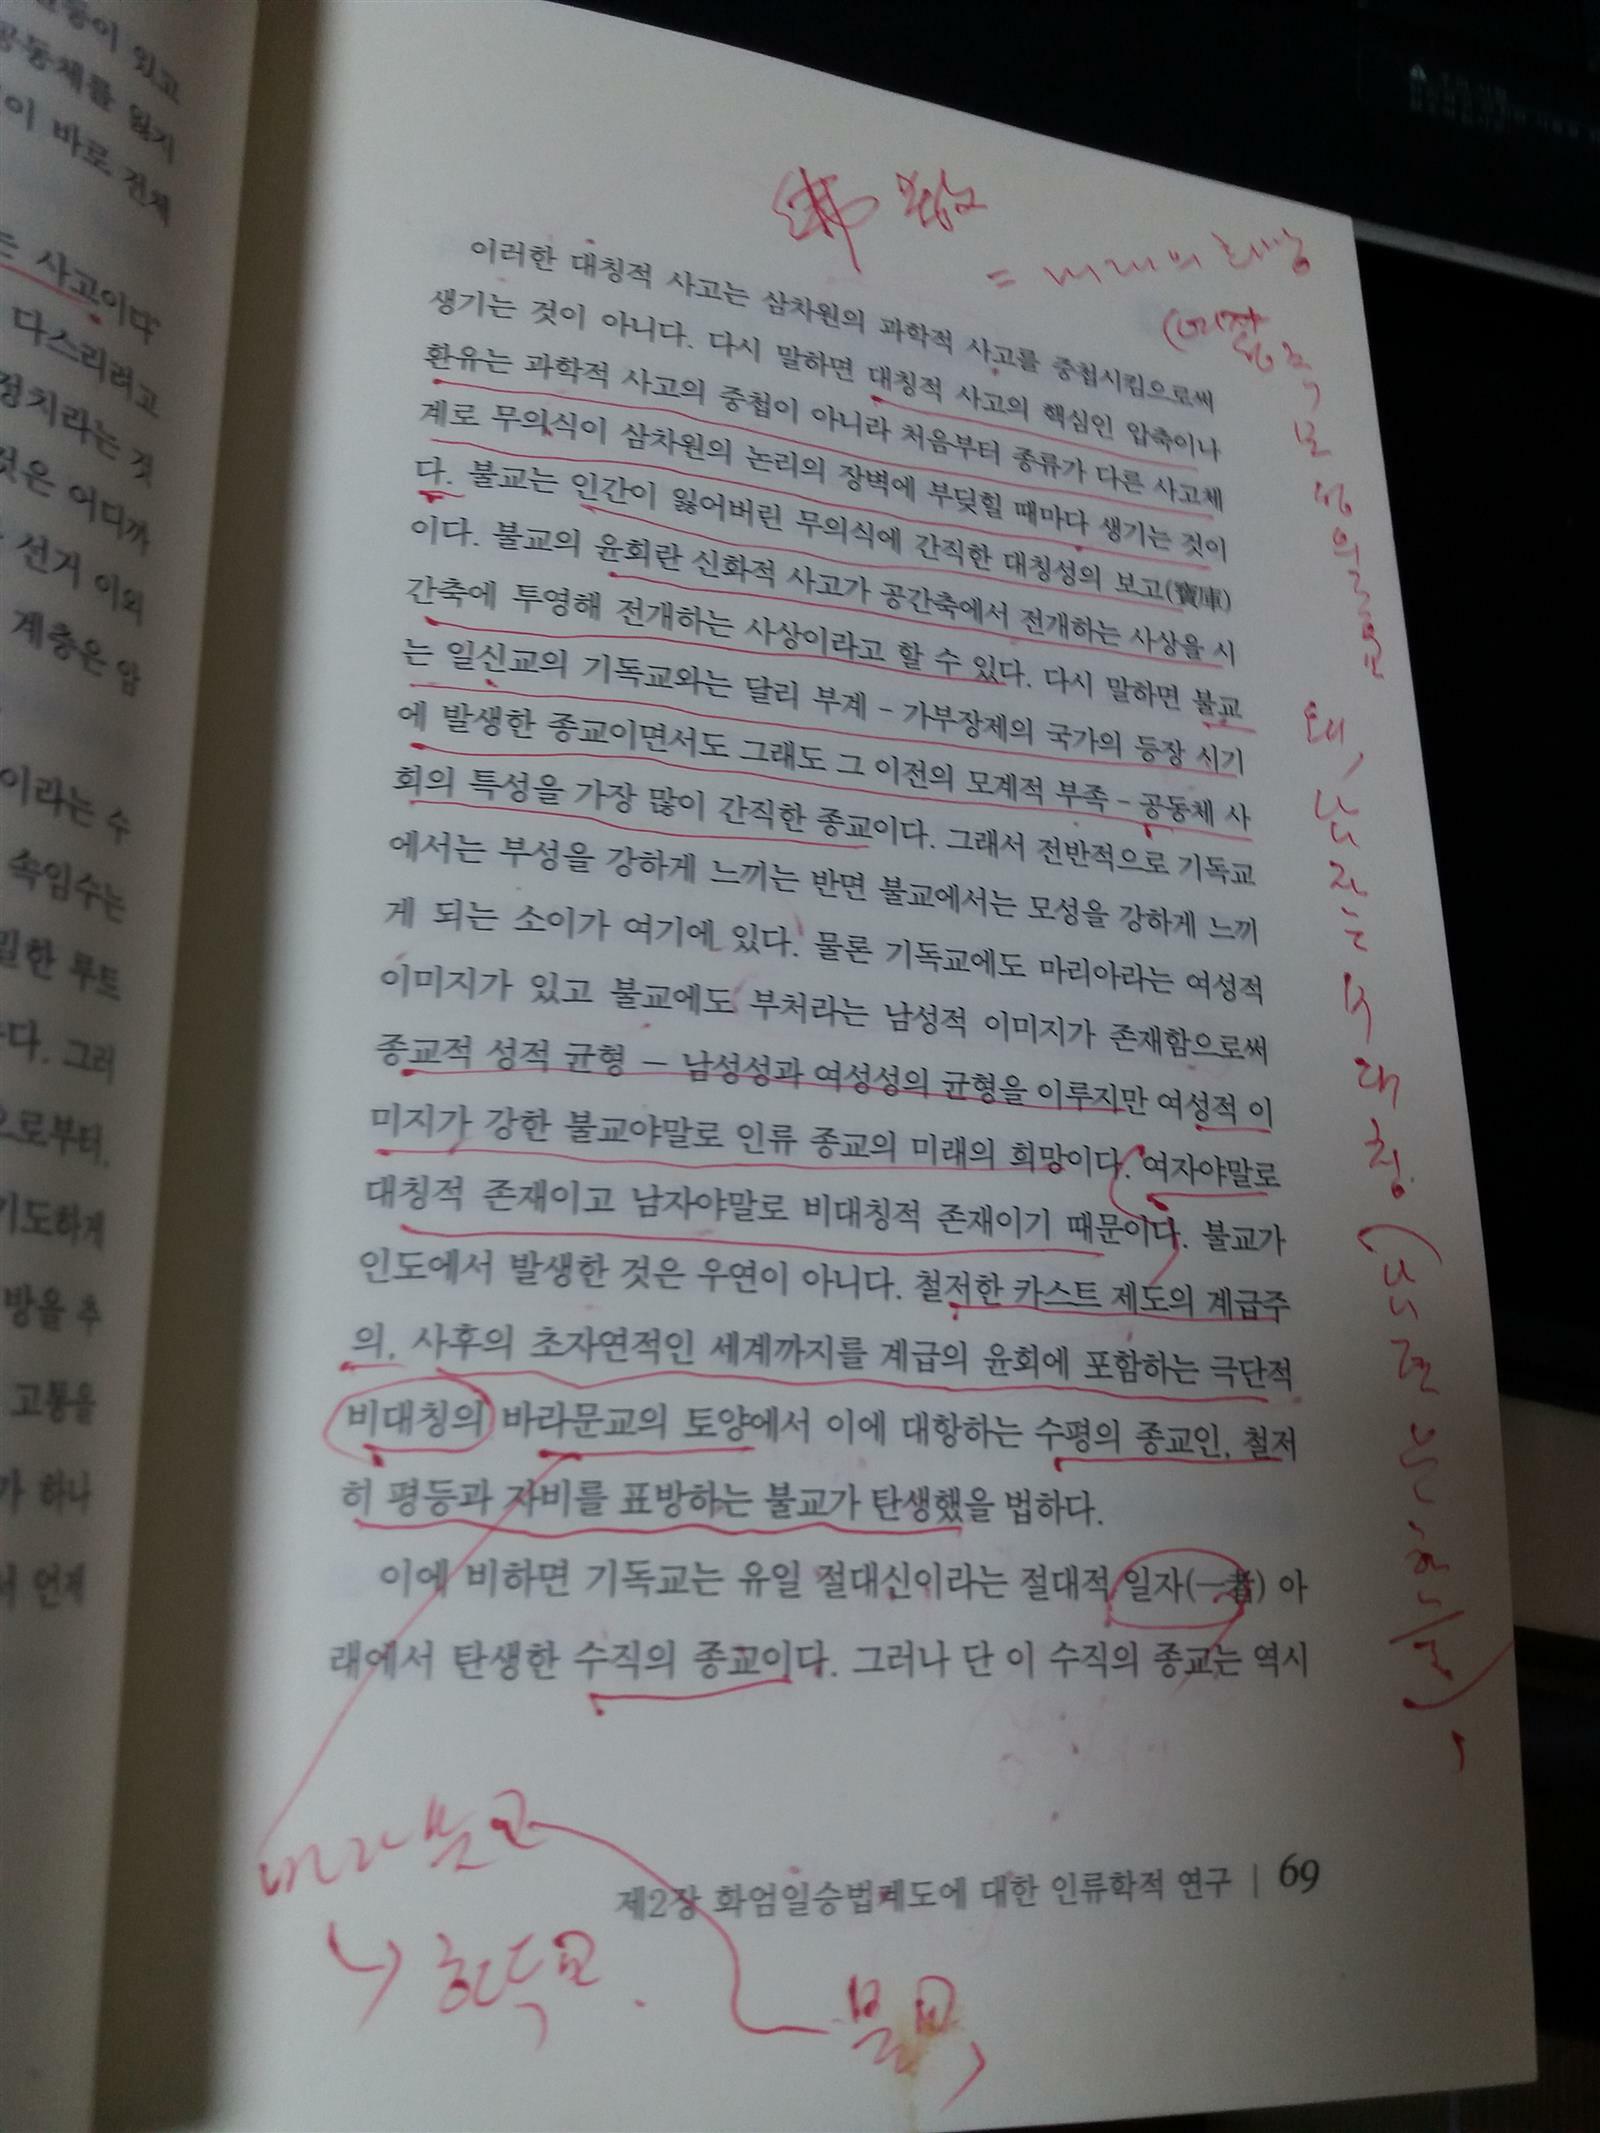 등이 있고
공동체를 뭡지
이 바로 전체
는 사고이다
다스리려고
정치라는 것
것은 어디까
선거 이외
계층은 압
이라는 수
속임수는
밀한 루트
다. 그러
으로부터,
기도하게
방을 추
고통을
가 하나
서 언제
불교
= 미래의 희망
이러한 대칭적 사고는 삼차원의 과학적 사고를 중첩시킴으로써
생기는 것이 아니다. 다시 말하면 대칭적 사고의 핵심인 압축이나
환유는 과학적 사고의 중첩이 아니라 처음부터 종류가 다른 사고체
계로 무의식이 삼차원의 논리의 장벽에 부딪힐 때마다 생기는 것이
다. 불교는 인간이 잃어버린 무의식에 간직한 대칭성의 보고(寶庫)
이다. 불교의 윤회란 신화적 사고가 공간축에서 전개하는 사상을 시
간축에 투영해 전개하는 사상이라고 할 수 있다. 다시 말하면 불교
는 일신교의 기독교와는 달리 부계 – 가부장제의 국가의 등장 시기
에 발생한 종교이면서도 그래도 그 이전의 모계적 부족 – 공동체 사
회의 특성을 가장 많이 간직한 종교이다. 그래서 전반적으로 기독교
에서는 부성을 강하게 느끼는 반면 불교에서는 모성을 강하게 느끼
게 되는 소이가 여기에 있다. 물론 기독교에도 마리아라는 여성적
이미지가 있고 불교에도 부처라는 남성적 이미지가 존재함으로써
종교적 성적 균형 – 남성성과 여성성의 균형을 이루지만 여성적 이
미지가 강한 불교야말로 인류 종교의 미래의 희망이다. 여자야말로
대칭적 존재이고 남자야말로 비대칭적 존재이기 때문이다. 불교가
인도에서 발생한 것은 우연이 아니다. 철저한 카스트 제도의 계급주
의, 사후의 초자연적인 세계까지를 계급의 윤회에 포함하는 극단적
비대칭의 바라문교의 토양에서 이에 대항하는 수평의 종교인, 철저
히 평등과 자비를 표방하는 불교가 탄생했을 법하다.
이에 비하면 기독교는 유일 절대신이라는 절대적 일자(一者) 아
래에서 탄생한 수직의 종교이다. 그러나 단 이 수직의 종교는 역시
왜, 남자는 비대칭
바라문교
힌두교.
불교,
제2장 화엄일승법계도에 대한 인류학적 연구 | 69